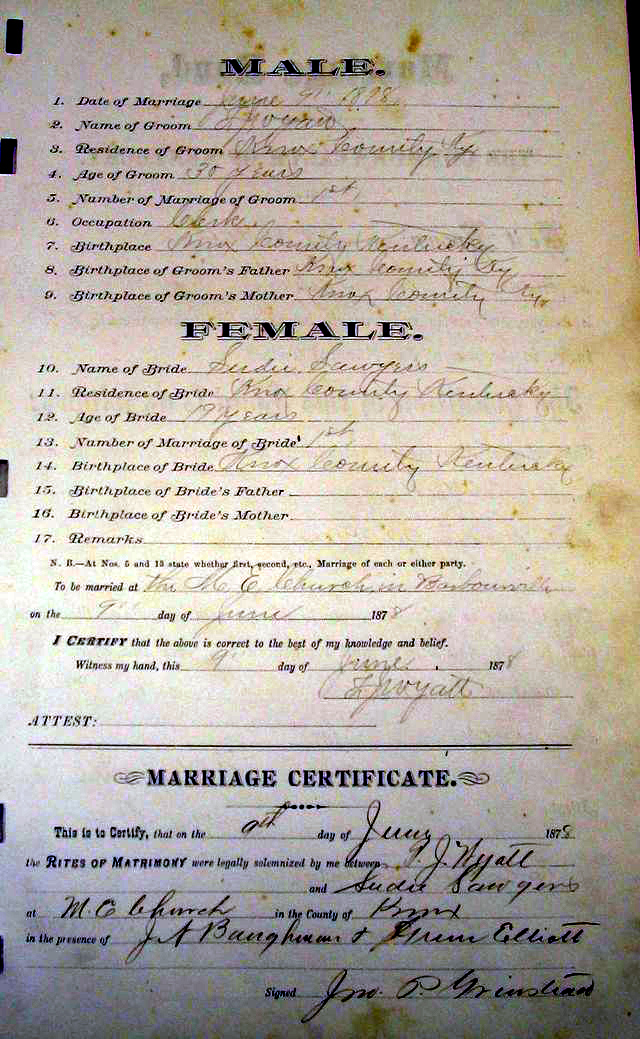 MALE.
1. Date of Marriage June 9th 1878
2. Name of Groom Wyatt
3. Residence of Groom Knox County Ky
4. Age of Groom 30 years
5. Number of Marriage of Groom 1st
6. Occupation Clerk
7. Birthplace Knox County Kentucky
8. Birthplace of Groom's Father Knox County Ky
9. Birthplace of Groom's Mother Knox County Ky.
FEMALE.
10. Name of Bride Sudie Sawyers
11. Residence of Bride Knox County Kentucky
12. Age of Bride 19 years
13. Number of Marriage of Bride 1st
14. Birthplace of Bride Knox County Kentucky
15. Birthplace of Bride's Father
16. Birthplace of Bride's Mother
17. Remarks
N. B.—At Nos. 5 and 13 state whether first, second, etc., Marriage of each or either party.
To be married at the M E Church in Barbourville
on the 9th day of June 1878
I CERTIFY that the above is correct to the best of my knowledge and belief.
Witness my hand, this 9th day of June 1878
Wyatt
ATTEST:
MARRIAGE CERTIFICATE.
This is to Certify, that on the 9th day of June 1878
the RITES OF MATRIMONY were legally solemnized by me between J. Wyatt
and Sudie Sawyers
at M. E Church in the County of Knox
in the presence of J A Baughman & Green Elliott
Signed Jno. P. Grinstead